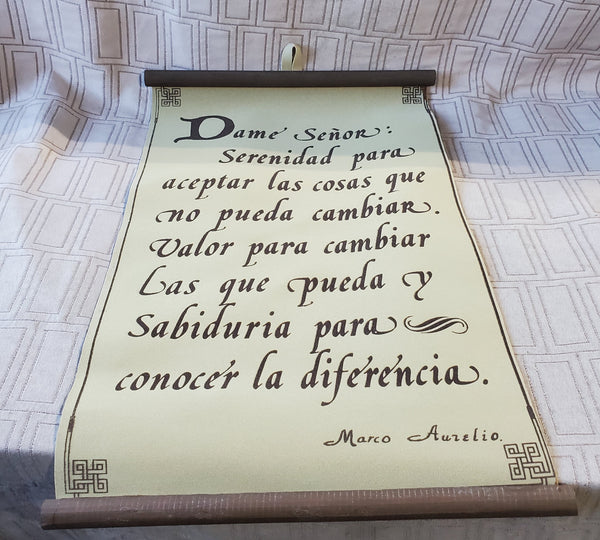 Dame Señor:
Serenidad para
aceptar las cosas que
no pueda cambiar.
Valor para cambiar
Las que pueda y
Sabiduria para
conocer la diferencia.
Marco Aurelio.